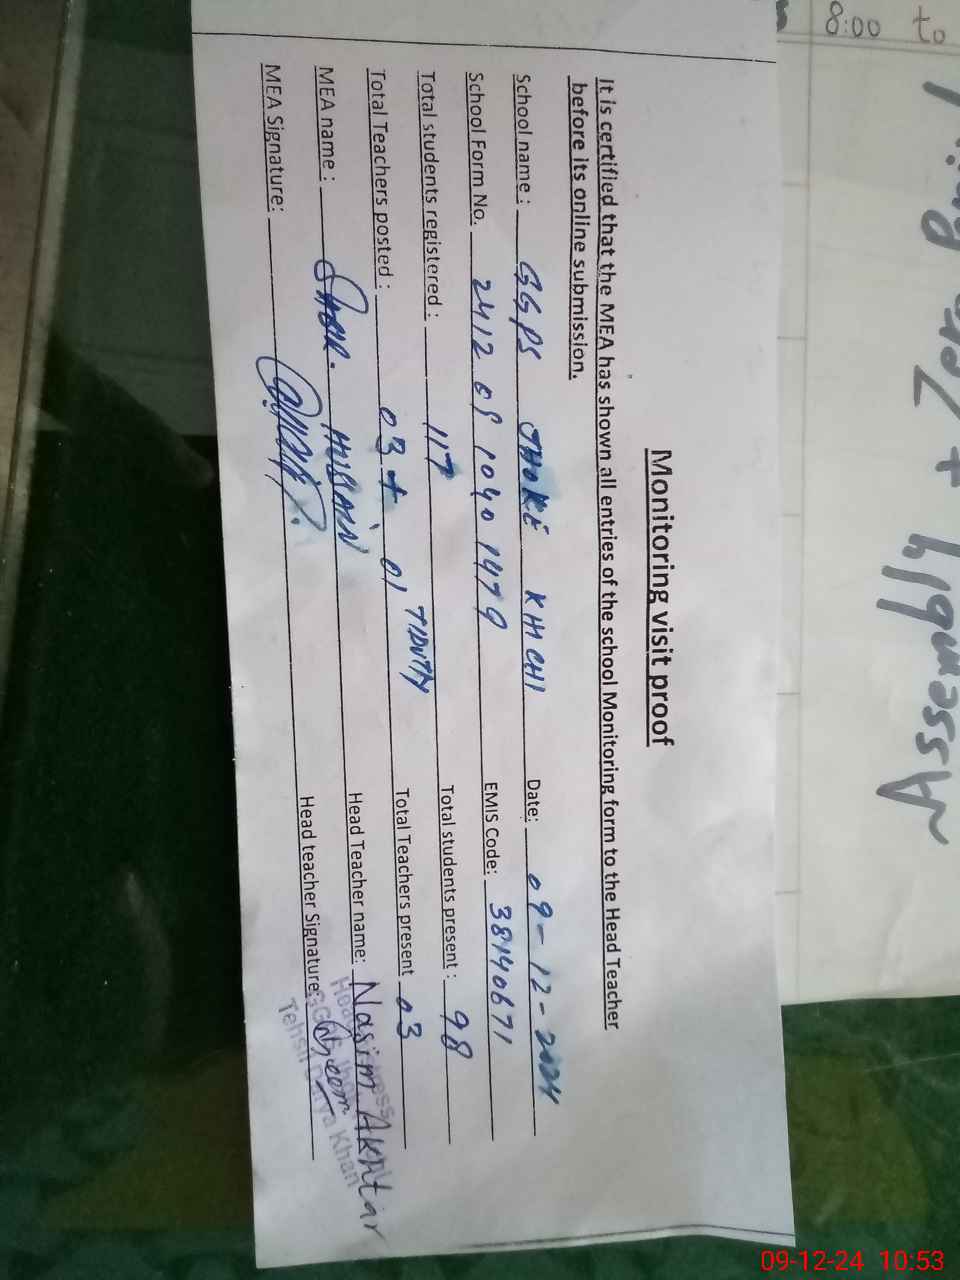 Monitoring visit proof
It is certified that the MEA has shown all entries of the school Monitoring form to the Head Teacher
before its online submission.
School name : GGPS JHOKE KHICHI Date: 09-12-2024
School Form No. 2412 05 1040 1479 EMIS Code: 38140671
Total students registered : 117 Total students present : 98
Total Teachers posted : 03 + 01 T/DUTY Total Teachers present 03
MEA name : SABIR HUSSAIN Head Teacher name: Nasim Akhtar
MEA Signature: Head teacher Signature:
Tehsil Darya Khan
8:00 to
Zero +
Assembly
09-12-24 10:53